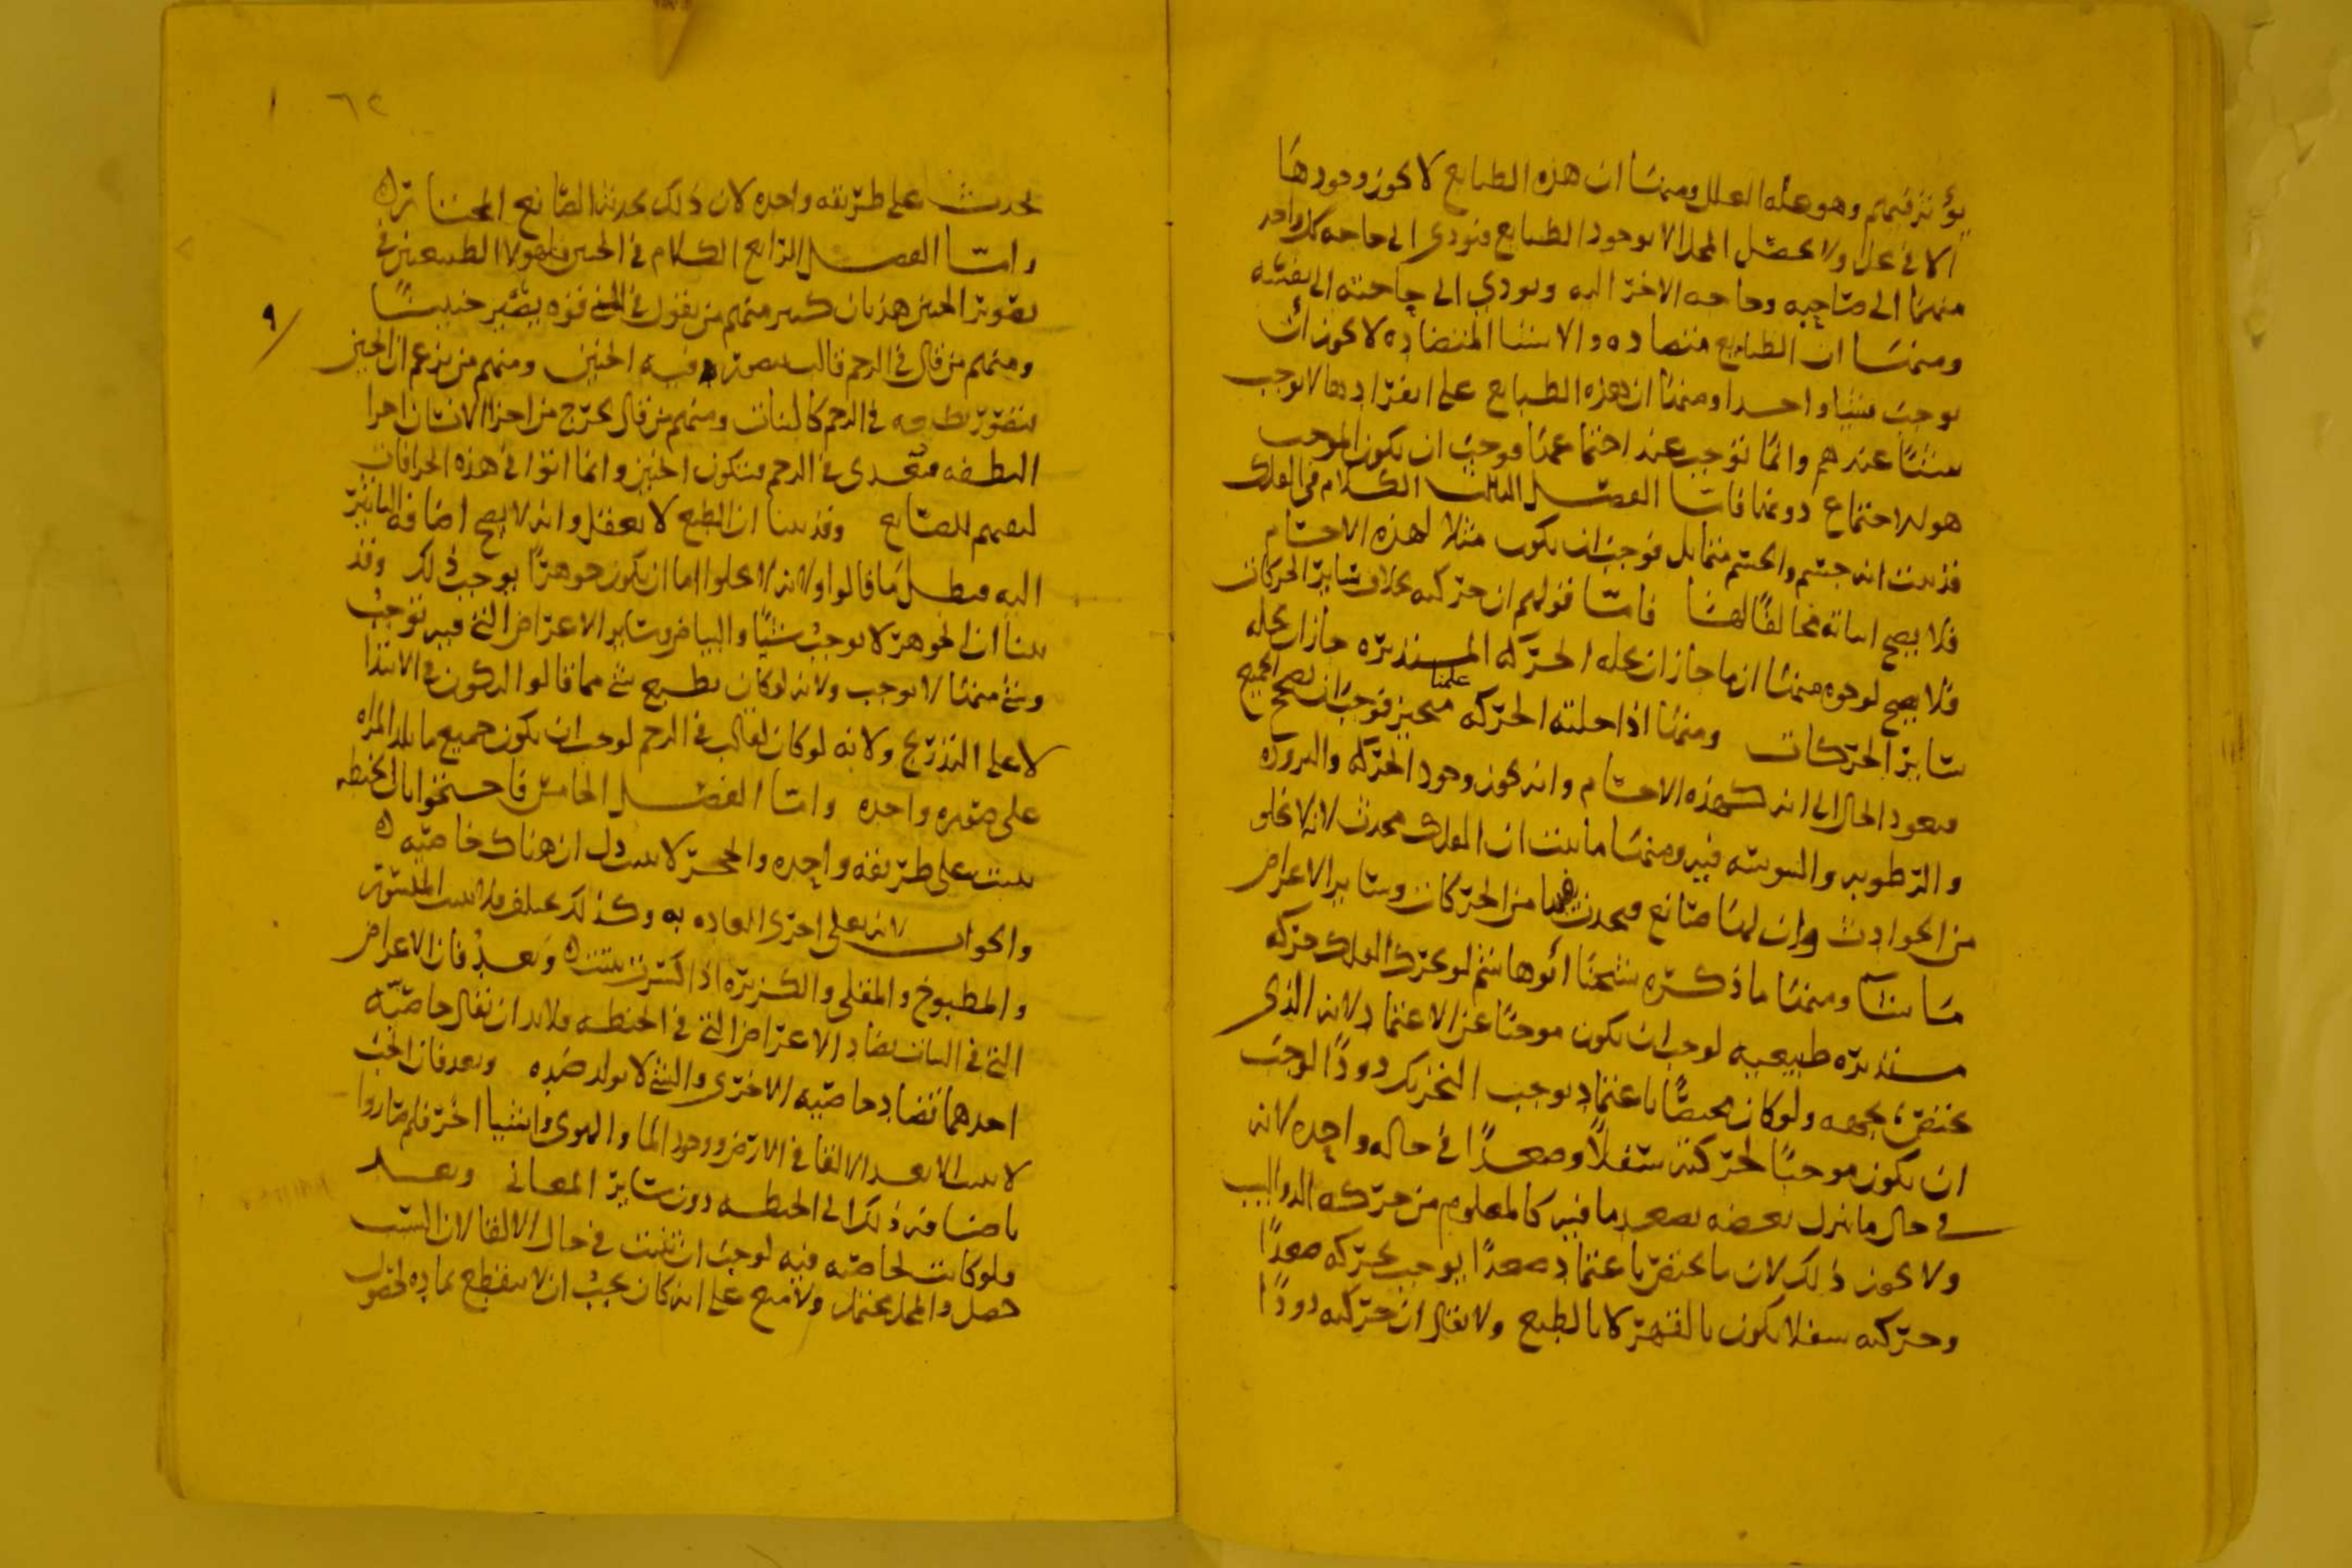 يؤثر فيهم وهو علة العلل ومنها ان هذه الطبايع لا يجوز وجودها
الا في محل ولا يحصل المحل الا بوجود الطبايع فيودي الى حاجه كل واحد
منهما الى صاحبه وحاجه الاخر اليه ويودي الى حاجته الى نفسه
ومنها ان الطبايع متضاده والاشيا المتضاده لا يجوز ان
يوجب شيا واحدا ومنها ان هذه الطبايع على انفرادها لا يوجب
شيا عندهم وانما توجب عند اجتماعها فوجب ان يكون الموجب
هو الاجتماع دونها فاما الفصل الثالث الكلام في الفلك
قد بينت انه جسم والجسم متماثل فوجب ان يكون مثلا لهذه الاجسام
فلا يصح اثباته مخالفا لها فاما قولهم ان حركته بخلاف ساير الحركات
فلا يصح لوجوه منها ان ما جاز ان يحله الحركه المستديره جاز ان يحله
ساير الحركات ومنها اذا حلته الحركه علمنا متحيز فوجب ان يصح الجميع
فيعود الحال الى انه كهذه الاجسام وانه يجوز وجود الحركه والبروده
والرطوبه واليبوسه فيه ومنها ما بينت ان الفلك محدث لانه لا يخلو
من الحوادث وان لها صانع فيحدث فيها من الحركات وساير الاعراض
ما شا ومنها ما ذكره شيخنا ابو هاشم لو تحرك الفلك حركه
مستديره طبيعيه لوجب ان يكون موجبا عن الاعتماد لانه الذي
يختص بجهه ولو كان مختصا باعتماد يوجب التحريك دورا لوجب
ان يكون موجبا لحركته سفلا وصعدا في حاله واحده لانه
في حال ما نزل بعضه يصعد ما فيه كالمعلوم من حركه الدواليب
ولا يجوز ذلك لان ما يختص باعتماد صعدا يوجب تحركه صعدا
وحركته سفلا يكون بالقهر لا بالطبع ولا يقال ان حركته دورا
٦٢
يحدث على طريقه واحده لان ذلك يحدثه الصانع المختار
واما الفصل الرابع الكلام في الجنين فلهولا الطبيعيين في
تصوير الجنين هذيان كثير منهم من يقول في المني قوه يصير جنينا
ومنهم من قال في الرحم قالب يتصور فيه الجنين ومنهم من يزعم ان الجنين
يتصور بطبعه في الرحم كالنبات ومنهم من قال يخرج من اجزا الانسان اجزا
النطفه فتغتدى في الرحم فيتكون الجنين وانما اتوا في هذه الخرافات
لنفيهم للصانع وقد بينا ان الطبع لا يعقل وانه لا يصح اضافه التاثير
اليه فبطل ما قالوا ولانه لا يخلوا اما ان يكون جوهرا يوجب ذلك وقد
بينا ان الجوهر لا يوجب شيا والبياض وساير الاعراض التي فيه توجب
وشي منها لا يوجب ولانه لو كان بطبع شي مما قالوا لتكون في الابتدا
لا على التدريج ولانه لو كان لقالب في الرحم لوجب ان يكون جميع ما تلد المراه
على صوره واحده واما الفصل الخامس فاحتجوا بان الحنطه
تنبت على طريقه واحده والحجر لا ينبت دل ان هناك خاصيه
والجواب لانه تعالى اجرى العاده به وكذلك يختلف فلا ينبت المسوس
والمطبوخ والمقلي والكزبره اذا كسرت تنبت وبعد فان الاعراض
التي في النبات تضاد الاعراض التي في الحنطه فلا بد ان يقال خاصيه
احدهما تضاد خاصيه الاخرى والشي لا يولد ضده وبعد فان الحب
لا ينبت الا بعد الالقا في الارض ووجود الما والهوى واشيا اخر فلم صاروا
باضافه ذلك الى الحنطه دون ساير المعاني وبعد
ولو كانت لخاصيه فيه لوجب ان تنبت في حال الالقا لان السبب
حصل والمحل محتمل ولا منع على انه كان يجب ان لا ينقطع نماوه لحصول